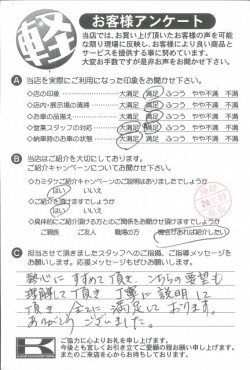 軽
お客様アンケート
当店では、お買い上げ頂いたお客様の声を可能
な限り現場に反映し、お客様により良い商品と
サービスを提供する事に努めています。
大変お手数ですが是非お声をお聞かせ下さい。
A 当店を実際にご利用になった印象をお聞かせ下さい。
◇店の印象 大満足 満足 ふつう やや不満 不満
◇店内・展示場の清掃 大満足 満足 ふつう やや不満 不満
◇お車の品揃え 大満足 満足 ふつう やや不満 不満
◇営業スタッフの対応 大満足 満足 ふつう やや不満 不満
◇納車時のお車の状態 大満足 満足 ふつう やや不満 不満
B 当店はご紹介を大切にしております。
ご紹介キャンペーンについてお聞かせ下さい。
◇カミタケご紹介キャンペーンのご説明はありましたでしょうか
はい いいえ
◇ご紹介頂けますでしょうか
はい いいえ
◇具体的にご紹介頂ける方とのご関係をお聞かせ頂けますでしょうか
ご親族 ご友人 職場の方 機会があれば紹介したい
C 担当させて頂きましたスタッフへのご指摘、ご指導メッセージを
お願いします。応援メッセージもぜひお願いします。
熱心にすすめて頂き、こちらの要望も
理解して頂き 丁寧に説明して
頂き 全てに満足しております。
ありがとうございました。
ご協力に心よりお礼を申し上げます。
今後とも宜しくお引き立てご愛顧の程お願い申し上げます。
またのご来店を心からお待ちしております。